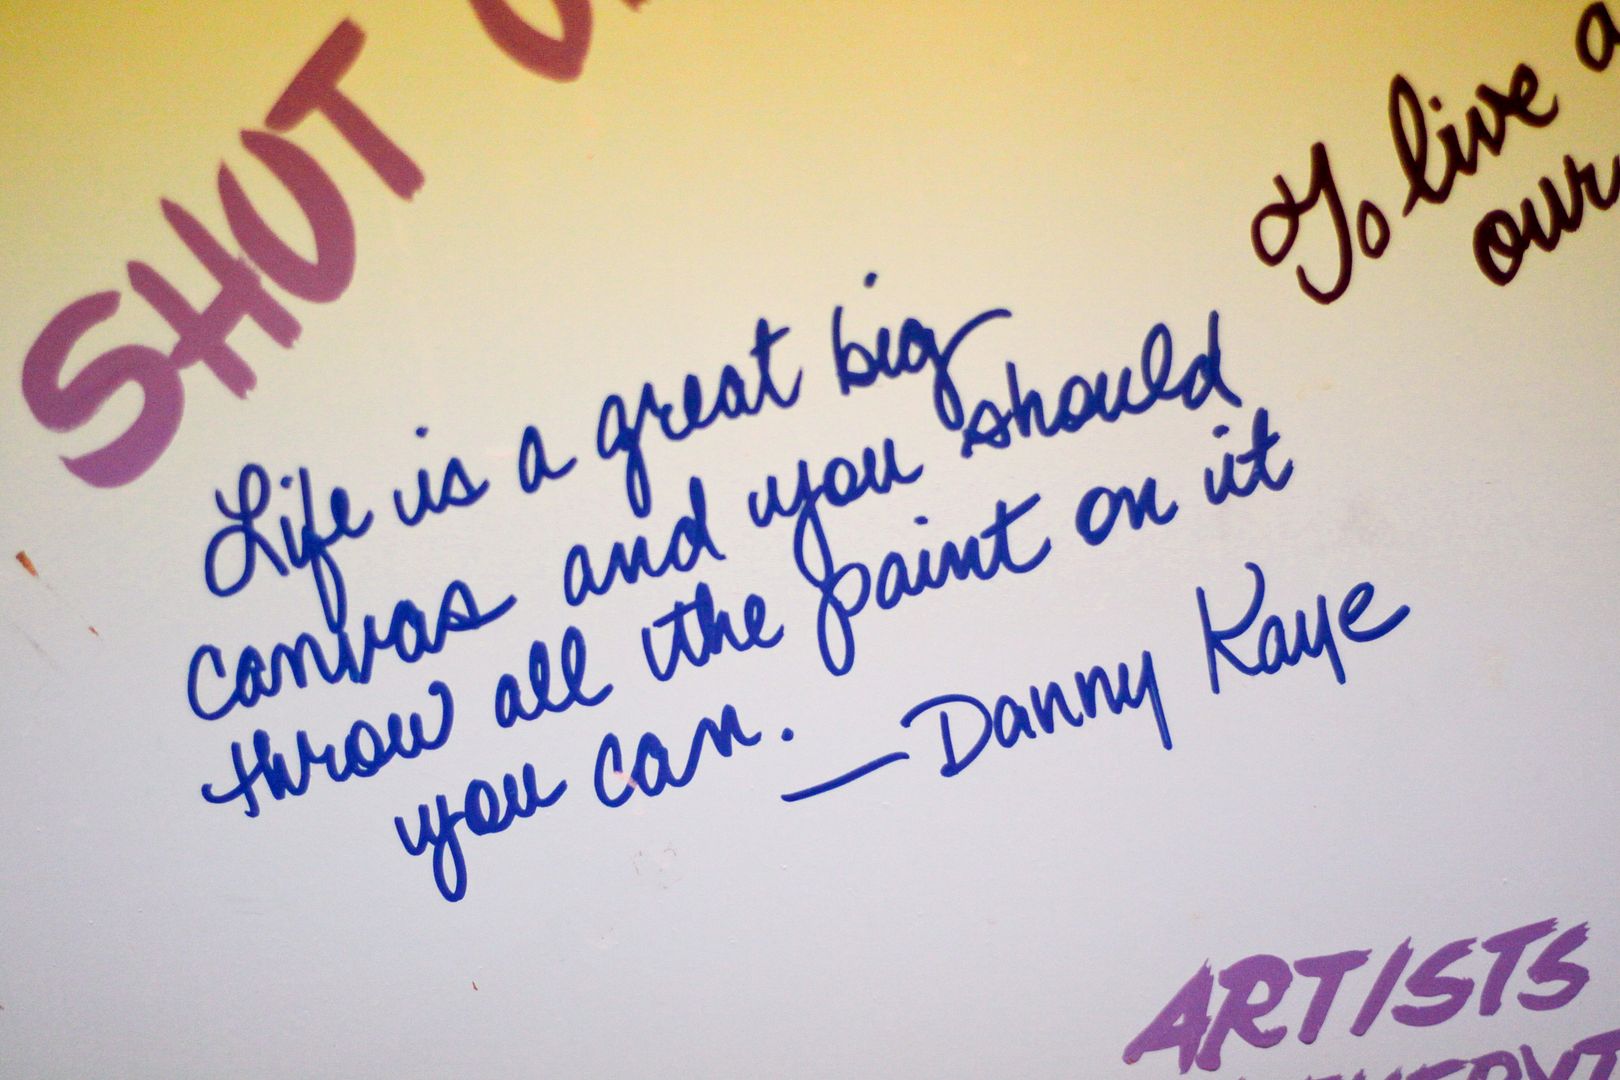 SHUT
To live a
our
Life is a great big
canvas and you should
throw all the paint on it
you can.
—Danny Kaye
ARTISTS